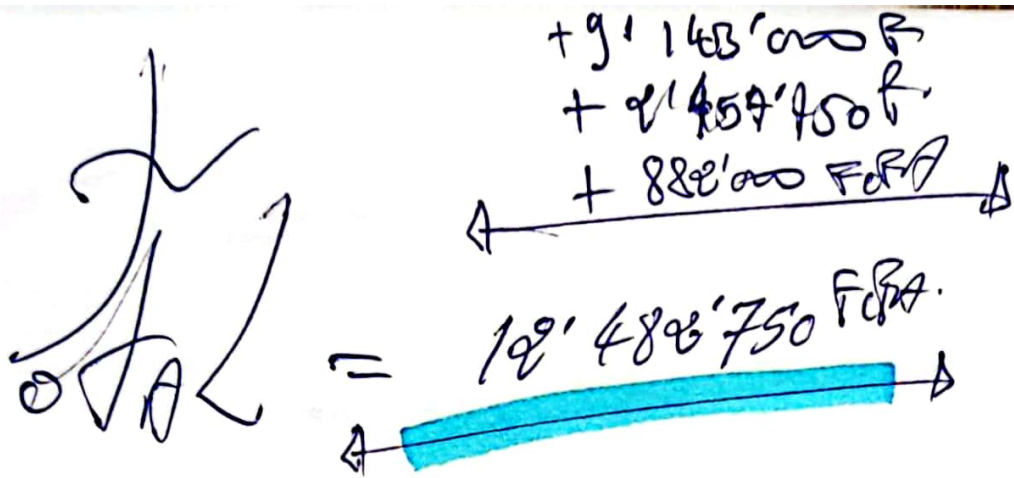 +9'143'000 F
+ 2'457'750 F.
+ 882'000 FCFA
TOTAL = 12'482'750 FCFA.